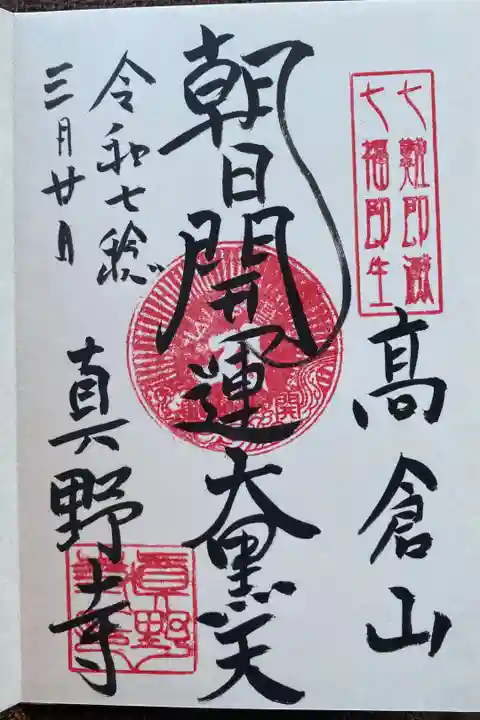 七難即滅
七福即生
高倉山
朝日開運大黒天
令和七年
三月廿日
真野寺